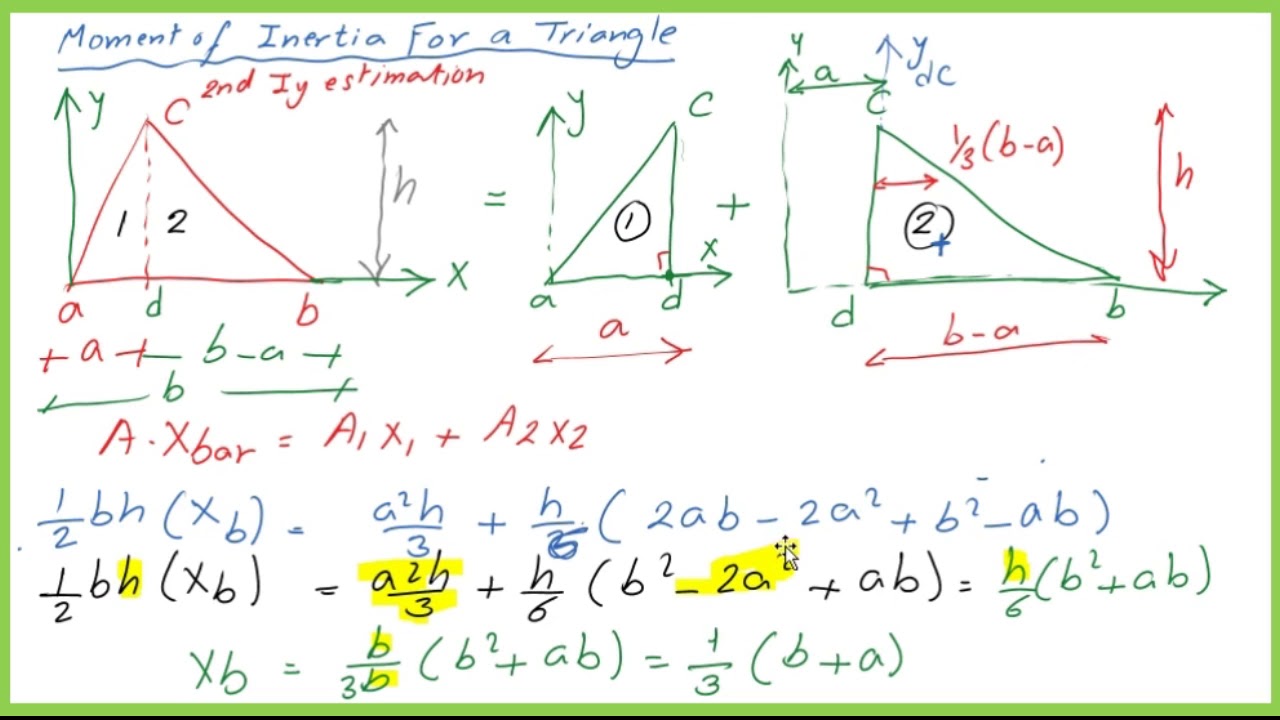 Moment of Inertia For a Triangle
2nd Iy estimation
y
C
1
2
h
a
d
b
x
+ a + b-a +
b
=
y
C
1
x
a
d
a
+
y
a
y dc
C
1/3(b-a)
2
h
d
b
b-a
A . Xbar = A1 x1 + A2 x2
1/2 bh (xb) = a²h/3 + h/6 ( 2ab - 2a² + b² - ab )
1/2 bh (xb) = a²h/3 + h/6 ( b² - 2a² + ab ) = h/6 (b² + ab)
xb = b/3b ( b² + ab ) = 1/3 ( b + a )